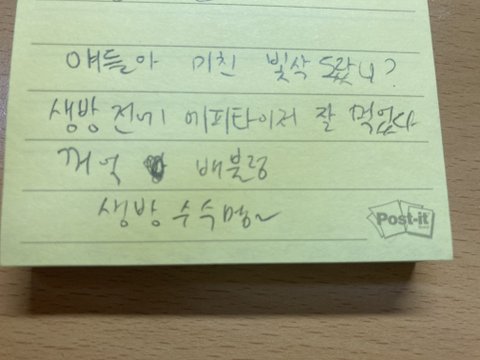 얘들아 미친 빛삭 돘니?
생방 전에 에피타이저 잘 먹었다
꺼억 배불렁
생방 수숙명~
Post-it